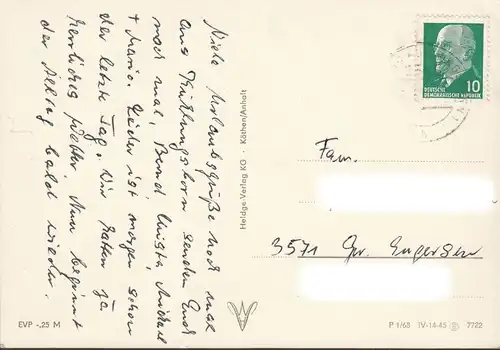 Viele Urlaubsgrüße noch mal
aus Frühlingsborn senden Euch
noch mal, Bernd, Christa, Michael
+ Mario. Leider ist morgen schon
der letzte Tag. Wir hatten ja
herrliches Wetter. Nun beginnt
der Alltag bald wieder.
Heldge-Verlag KG · Köthen/Anhalt
DEUTSCHE
DEMOKRATISCHE REPUBLIK
10
Fam.
3571 Gr. Engersen
EVP -,25 M
P 1/68 IV-14-45 7722